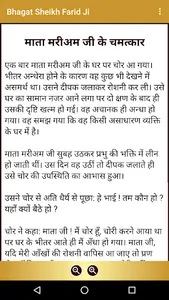 Bhagat Sheikh Farid Ji
माता मरीअम जी के चमत्कार
एक बार माता मरीअम जी के घर पर चोर आ गया।
भीतर अन्धेरा होने के कारण वह कुछ भी देखने में
असमर्थ था। उसने दीपक जलाकर रोशनी कर ली। उसे
घर का सामान नजर आने लगा पर दो क्षण के बाद ही
उसकी दृष्टि खत्म हो गई। वह अचानक ही अन्धा हो
गया। वह समझ गया कि वह किसी असाधारण व्यक्ति
के घर में है।
माता मरीअम जी सुबह उठकर प्रभु की भक्ति में लीन
हो जाती थीं। उस दिन वह उठीं तो दीपक जलाते ही
उसे चोर की उपस्थिति का आभास हुआ।
उसने चोर से अति धैर्य से पूछा: हे भाई ! तम कौन हो ?
यहाँ क्यों बैठे हो ?
चोर ने कहा: माता जी ! मैं चोर हूँ, चोरी करने आया था
पर घर के भीतर आते ही मैं अँधा हो गया। माता जी,
यदि मेरी आँखों की रोशनी वापिस आ जाए तो प्रण